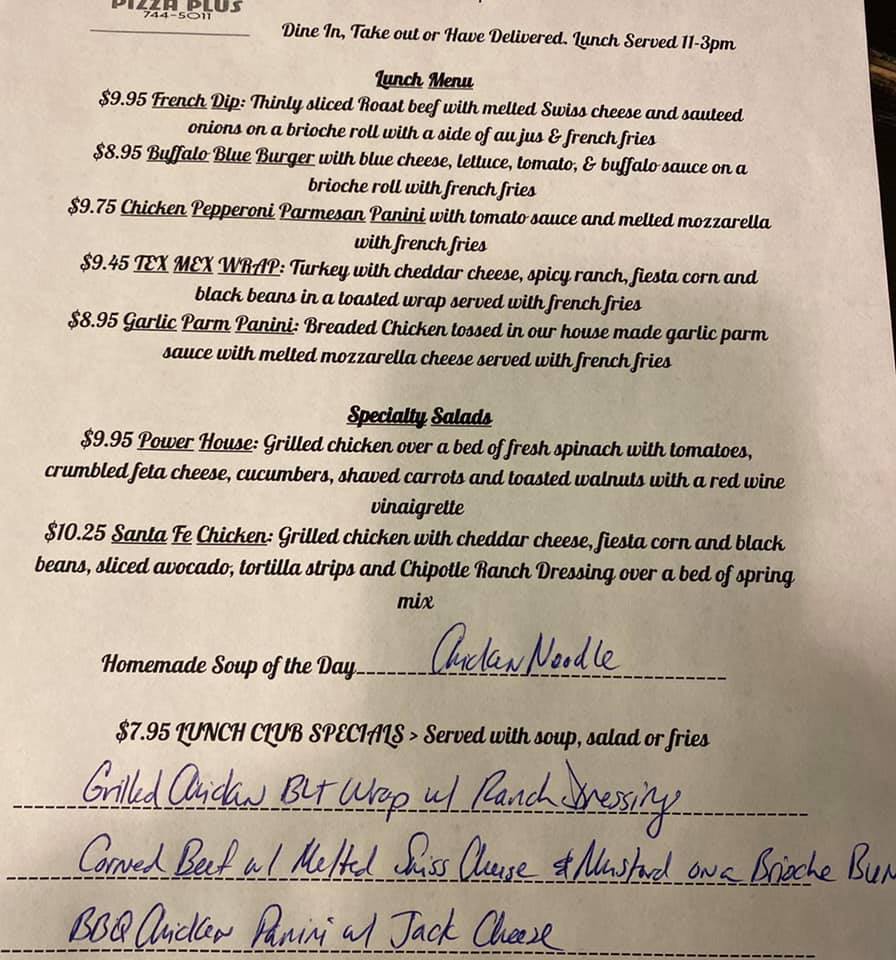 PIZZA PLUS
744-5011
Dine In, Take out or Have Delivered. Lunch Served 11-3pm
Lunch Menu
$9.95 French Dip: Thinly sliced Roast beef with melted Swiss cheese and sauteed
onions on a brioche roll with a side of au jus & french fries
$8.95 Buffalo Blue Burger with blue cheese, lettuce, tomato, & buffalo sauce on a
brioche roll with french fries
$9.75 Chicken Pepperoni Parmesan Panini with tomato sauce and melted mozzarella
with french fries
$9.45 TEX MEX WRAP: Turkey with cheddar cheese, spicy ranch, fiesta corn and
black beans in a toasted wrap served with french fries
$8.95 Garlic Parm Panini: Breaded Chicken tossed in our house made garlic parm
sauce with melted mozzarella cheese served with french fries
Specialty Salads
$9.95 Power House: Grilled chicken over a bed of fresh spinach with tomatoes,
crumbled feta cheese, cucumbers, shaved carrots and toasted walnuts with a red wine
vinaigrette
$10.25 Santa Fe Chicken: Grilled chicken with cheddar cheese, fiesta corn and black
beans, sliced avocado, tortilla strips and Chipotle Ranch Dressing over a bed of spring
mix
Homemade Soup of the Day Chicken Noodle
$7.95 LUNCH CLUB SPECIALS > Served with soup, salad or fries
Grilled Chicken BLT Wrap w/ Ranch Dressing
Corned Beef w/ Melted Swiss Cheese & Mustard on a Brioche Bun
BBQ Chicken Panini w/ Jack Cheese